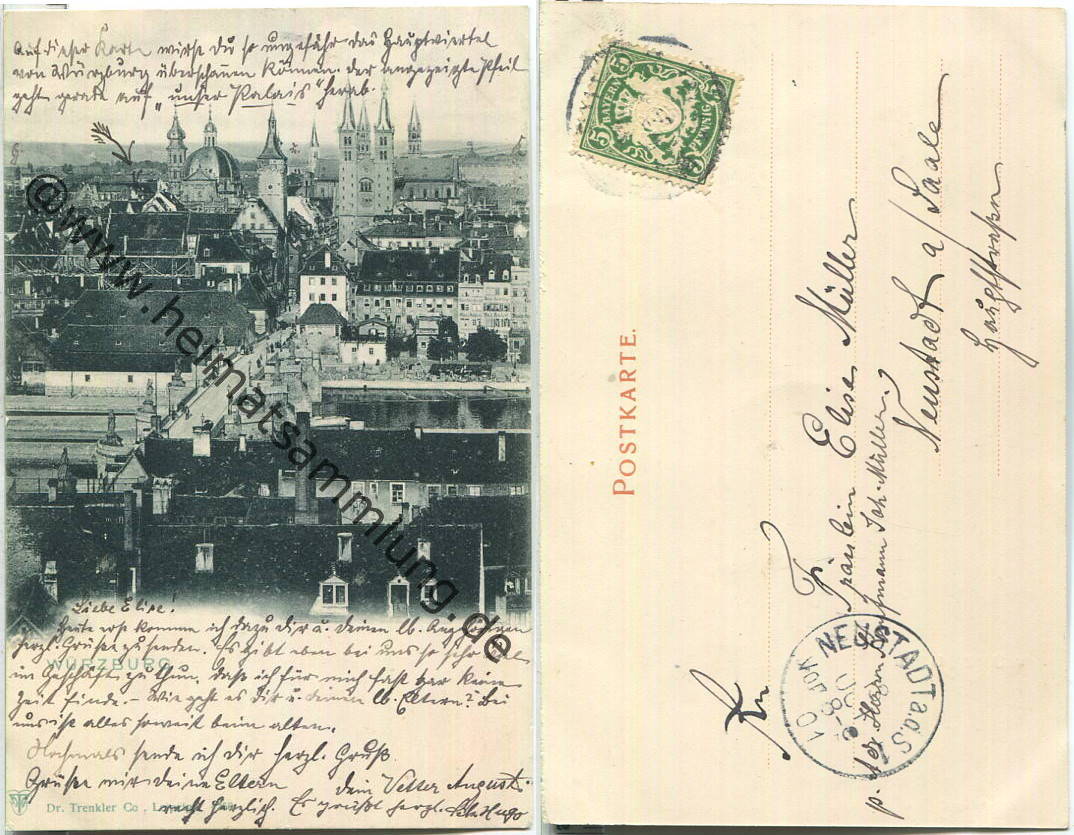 Auf dieser Karte wirst du so ungefähr das Hauptviertel
von Würzburg überschauen können. der angezeigte Pfeil
geht gerade auf „unser Palais" herab.
@www.heimatsammlung.de
Liebe Elise!
Heute erst komme ich dazu dir u. deinen lb. Angehörigen
herzl. Grüße zu senden. Es gibt eben bei uns so sehr viel
WÜRZBURG
im Geschäft zu thun, daß ich für mich fast gar keine
Zeit finde. – Wie geht es dir u. deinen lb. Eltern? Bei
uns ist alles soweit beim alten.
Nochmals sende ich dir herzl. Gruß.
Grüße mir deine Eltern dein Vetter August.
recht herzlich. Es grüßt herzl. Hugo
Dr. Trenkler Co., Leipzig
BAYERN
5 PFENNIG 5
POSTKARTE.
An
Fräulein Elise Müller
p. Adr. Herrn Kaufmann Joh. Müller
Neustadt a/Saale
Hauptstraße
NEUSTADT a.d.S.